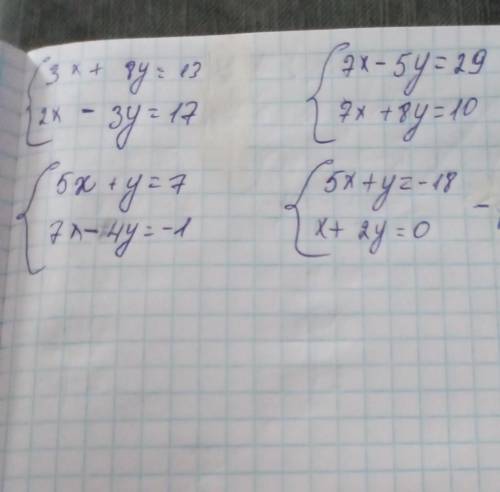 3x + 8y = 13
2x - 3y = 17
7x - 5y = 29
7x + 8y = 10
5x + y = 7
7x - 4y = -1
5x + y = -18
x + 2y = 0